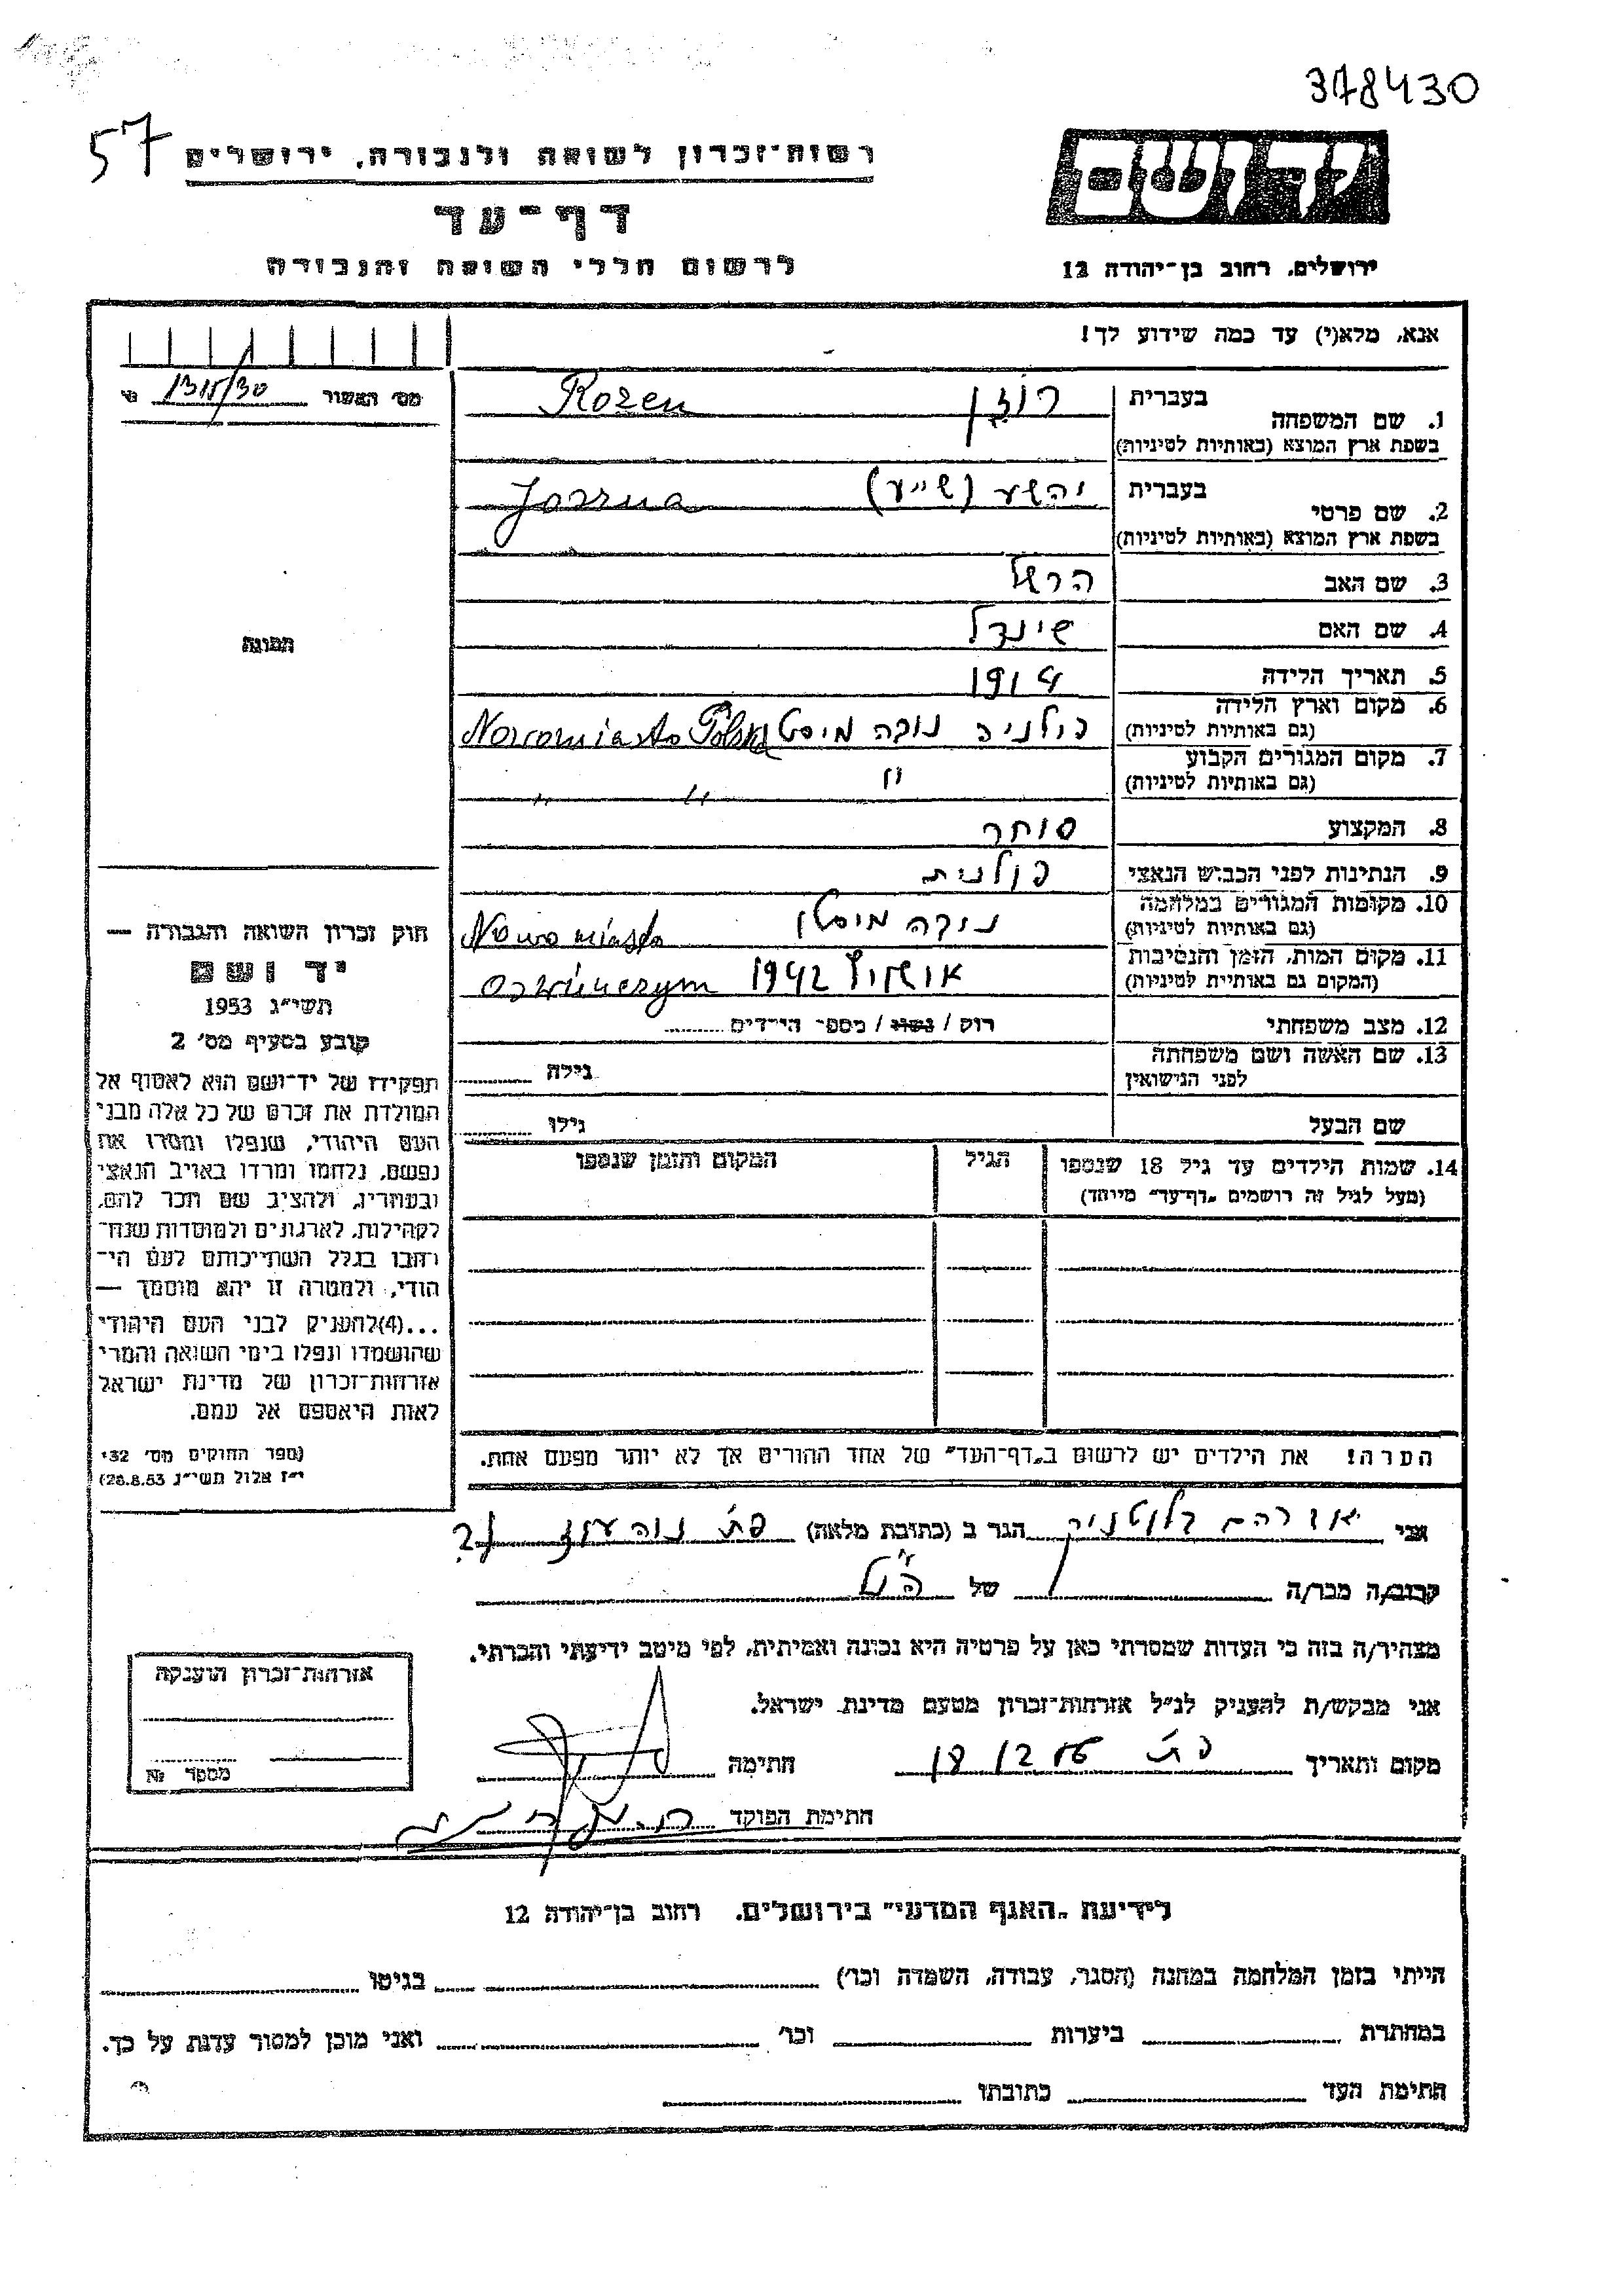 378430
57
רשות־זכרון לשואה ולגבורה, ירושלים
דף־עד
לרשום חללי השואה והגבורה
יד ושם
ירושלים, רחוב בן־יהודה 12
אנא, מלא(י) עד כמה שידוע לך!
מס׳ האשור 1315/30
1. שם המשפחה בעברית רוזן Rozen
בשפת ארץ המוצא (באותיות לטיניות)
2. שם פרטי בעברית יהשע (שייע) Joszua
בשפת ארץ המוצא (באותיות לטיניות)
3. שם האב הרשל
4. שם האם שינדל
5. תאריך הלידה 1914
6. מקום וארץ הלידה פולניה נובה מיסטו Nowomiasto Polska
(גם באותיות לטיניות)
7. מקום המגורים הקבוע " " "
(גם באותיות לטיניות)
8. המקצוע סוחר
9. הנתינות לפני הכבוש הנאצי פולנית
10. מקומות המגורים במלחמה נובה מיסטו Nowo miasto
(גם באותיות לטיניות)
11. מקום המות, הזמן והנסיבות 1942
(המקום גם באותיות לטיניות)
12. מצב משפחתי רוק / נשוי / מספר הילדים
13. שם האשה ושם משפחתה גילה
לפני הנישואין
שם הבעל גילו
14. שמות הילדים עד גיל 18 שנספו הגיל המקום והזמן שנספו
(מעל לגיל זה רושמים "דף־עד" מיוחד)
הערה! את הילדים יש לרשום ב"דף־העד" של אחד ההורים אך לא יותר מפעם אחת.
תמונה
חוק זכרון השואה והגבורה —
יד ושם
תשי"ג 1953
קובע בסעיף מס׳ 2
תפקידו של יד־ושם הוא לאסוף אל
המולדת את זכרם של כל אלה מבני
העם היהודי, שנפלו ומסרו את
נפשם, נלחמו ומרדו באויב הנאצי
ובעוזריו, ולהציב שם וזכר להם,
לקהילות, לארגונים ולמוסדות שנח־
רבו בגלל השתייכותם לעם הי־
הודי, ולמטרה זו יהא מוסמך —
...(4)להעניק לבני העם היהודי
שהושמדו ונפלו בימי השואה והמרי
אזרחות־זכרון של מדינת ישראל
לאות היאספם אל עמם.
(ספר החוקים מס׳ 132
י"ז אלול תשי"ג 28.8.53)
אני הגר ב (כתובת מלאה) פת נוה עוז 21
קרוב/ה מכר/ה של
מצהיר/ה בזה כי העדות שמסרתי כאן על פרטיה היא נכונה ואמיתית, לפי מיטב ידיעתי והכרתי.
אני מבקש/ת להעניק לנ"ל אזרחות־זכרון מטעם מדינת ישראל.
מקום ותאריך פת 18/2 56 חתימה
חתימת הפוקד
אזרחות־זכרון הוענקה
מספר №
לידיעת "האגף המדעי" בירושלים. רחוב בן־יהודה 12
הייתי בזמן המלחמה במחנה (הסגר, עבודה, השמדה וכו׳) בגיטו
במחתרת ביערות וכו׳ ואני מוכן למסור עדות על כך.
חתימת העד כתובתו